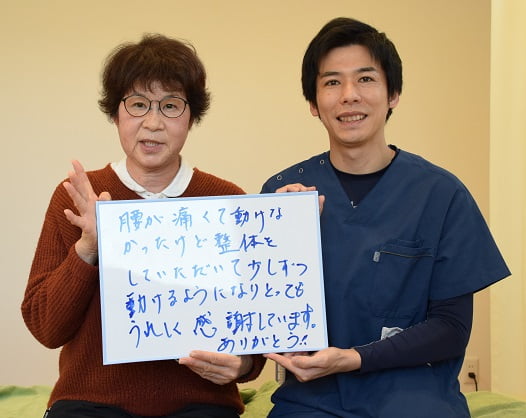 腰が痛くて動けな
かったけど整体を
していただいて少しずつ
動けるようになりとっても
うれしく感謝しています。
ありがとう!!